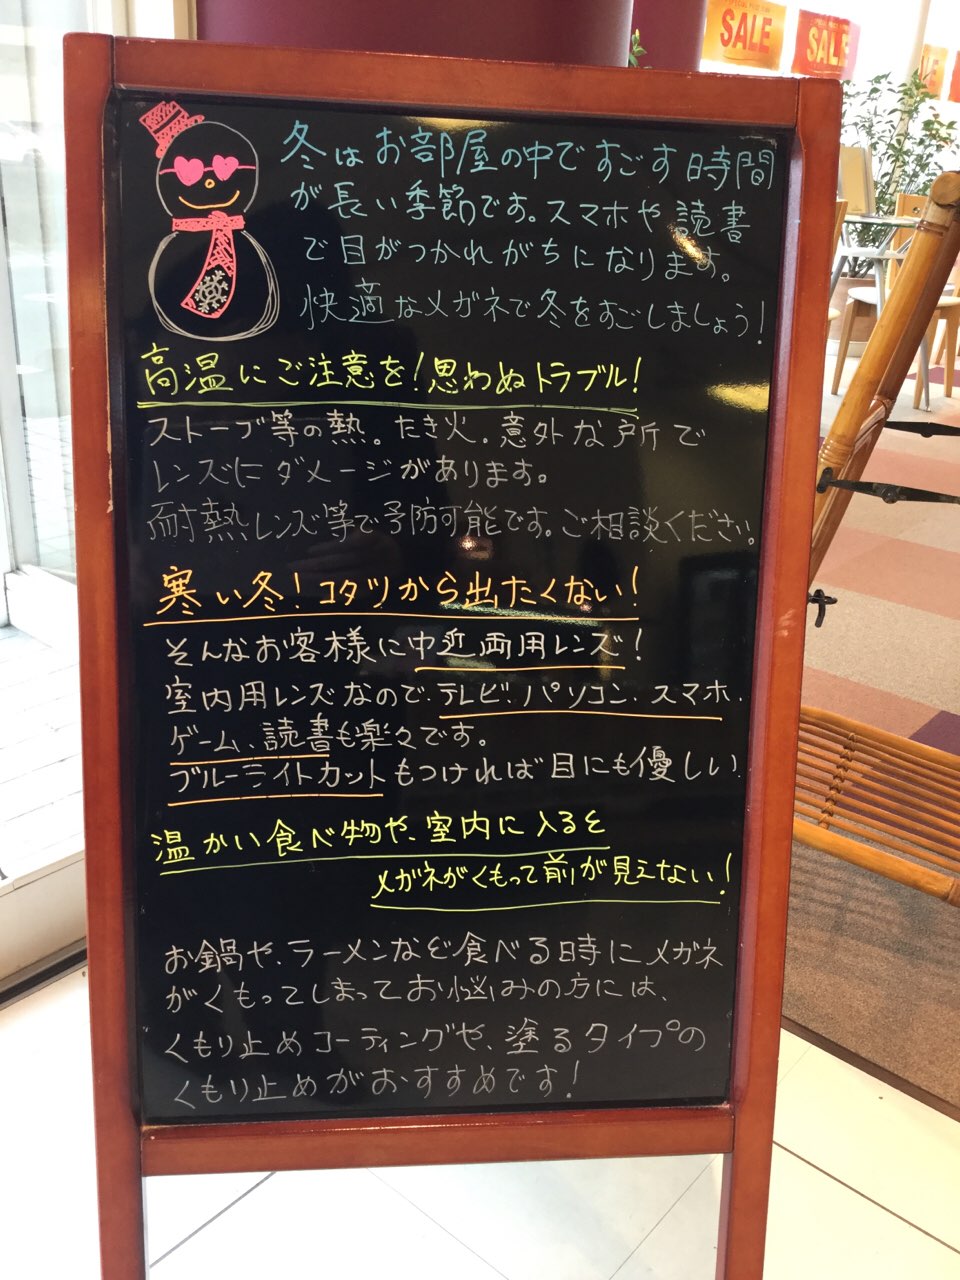 SALE
SALE
冬はお部屋の中ですごす時間
が長い季節です。スマホや読書
で目がつかれがちになります。
快適なメガネで冬をすごしましょう!
高温にご注意を!思わぬトラブル!
ストーブ等の熱。たき火。意外な所で
レンズにダメージがあります。
耐熱レンズ等で予防可能です。ご相談ください。
寒い冬!コタツから出たくない!
そんなお客様に中近両用レンズ!
室内用レンズなので、テレビ、パソコン、スマホ、
ゲーム、読書も楽々です。
ブルーライトカットもつければ目にも優しい。
温かい食べ物や、室内に入ると
メガネがくもって前が見えない!
お鍋や、ラーメンなど食べる時にメガネ
がくもってしまってお悩みの方には、
くもり止めコーティングや、塗るタイプの
くもり止めがおすすめです!